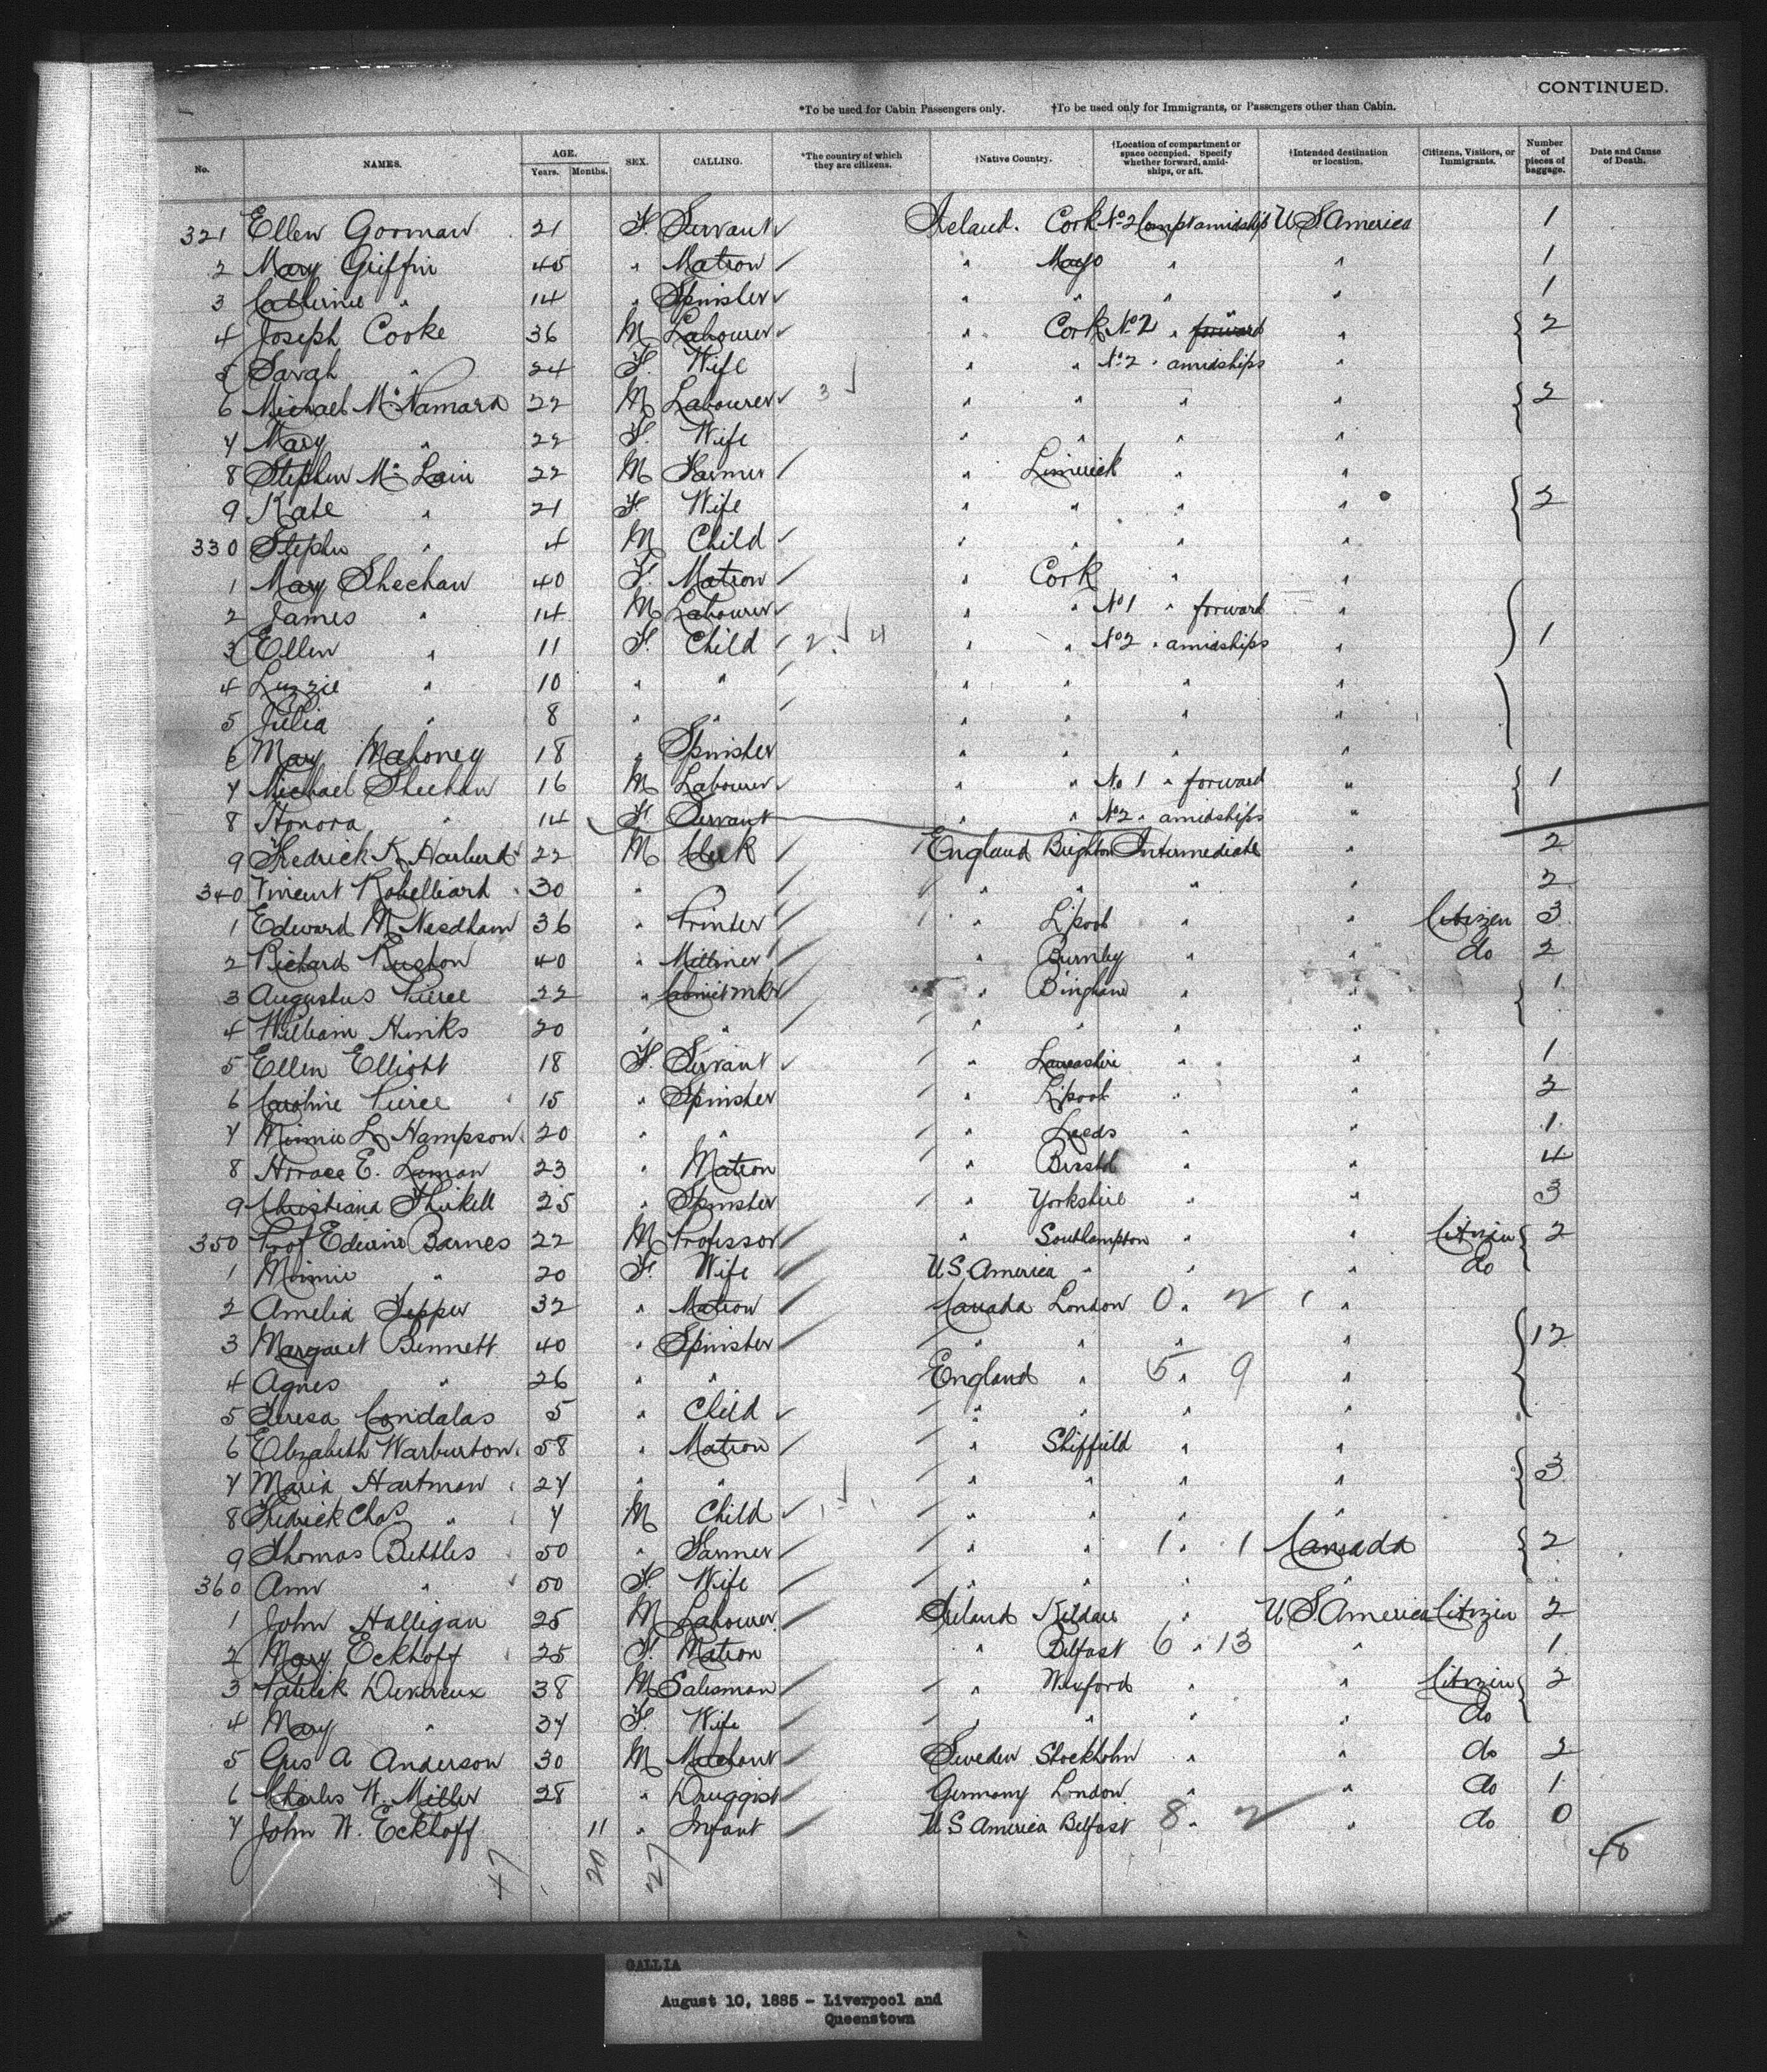 CONTINUED.
*To be used for Cabin Passengers only. †To be used only for Immigrants, or Passengers other than Cabin.
No. NAMES. AGE. Years. Months. SEX. CALLING. *The country of which they are citizens. †Native Country. †Location of compartment or space occupied. Specify whether forward, amidships, or aft. †Intended destination or location. Citizens, Visitors, or Immigrants. Number of pieces of baggage. Date and Cause of Death.
321 Ellen Gorman 21 F. Servant Ireland. Cork No 2 Compt amidship U S America 1
2 Mary Griffin 45 " Matron " Mayo " " 1
3 Catherine " 14 " Spinster " " " " 1
4 Joseph Cooke 36 M Labourer " Cork No 2 " forward " 2
5 Sarah " 24 F. Wife " " No 2 " amidships "
6 Michael McNamara 22 M Labourer 3 " " " " 2
7 Mary " 22 F. Wife " " " "
8 Stephen Mc Lain 22 M Farmer " Limerick " "
9 Kate " 21 F Wife " " " " 2
330 Stephn " 4 M Child " " " "
1 Mary Sheehan 40 F. Matron " Cork " "
2 James " 14 M Labourer " " No 1 " forward "
3 Ellen " 11 F. Child 2 4 " " No 2 " amidships " 1
4 Lizzie " 10 " " " " " "
5 Julia " 8 " " " " " "
6 Mary Mahoney 18 " Spinster " " " "
7 Michael Sheehan 16 M Labourer " " No 1 " forward " 1
8 Honora " 14 F Servant " " No 2 " amidships "
9 Fredrick K Harburd 22 M Clerk England Brighton Intermediate " 2
340 Vincent Robelliard 30 " " " " " 2
1 Edward M Needham 36 " Printer " L'pool " " Citizen 3
2 Richard Rushton 40 " Milliner " Burnley " " do 2
3 Augustus Pierce 22 " Cabinet mkr " Bingham " " 1
4 William Hinks 20 " " " " " "
5 Ellen Elliott 18 F. Servant " Lancashire " " 1
6 Caroline Pierce 15 " Spinster " L'pool " " 2
7 Minnie L Hampson 20 " " " Leeds " " 1
8 Horace E. Leman 23 " Matron " Bristol " " 4
9 Christiana Thirkell 25 " Spinster " Yorkshire " " 3
350 Prof Edwin Barnes 22 M Professor " Southampton " " Citizen 2
1 Minnie " 20 F. Wife U S America " " " do
2 Amelia Tepper 32 " Matron Canada London 0 " 2 1 "
3 Margaret Bennett 40 " Spinster " " " " 12
4 Agnes " 26 " " England " 5 " 9 "
5 Teresa Condalas 5 " Child " " " "
6 Elizabeth Warburton 58 " Matron " Sheffield " "
7 Maria Hartman 27 " " " " " " 3
8 Fredrick Chas " 7 M Child " " " "
9 Thomas Bettles 50 " Farmer " " 1 " 1 Canada 2
360 Ann " 50 F. Wife " " " "
1 John Halligan 25 M Labourer Ireland Kildare " U S America Citizen 2
2 Mary Eckhoff 25 F. Matron " Belfast 6 " 13 " 1
3 Patrick Devereux 38 M Salesman " Wexford " " Citizen 2
4 Mary " 37 F. Wife " " " " do
5 Gus A Anderson 30 M Merchant Sweden Stockholm " " do 2
6 Charles W. Miller 28 " Druggist Germany London " " do 1
7 John W. Eckhoff 11 " Infant U S America Belfast 8 " 2 " do 0
47 20 27
GALLIA
August 10, 1885 - Liverpool and
Queenstown